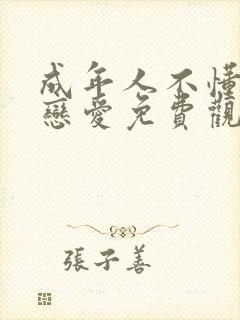 成年人不懂
戀愛免費觀
張子善